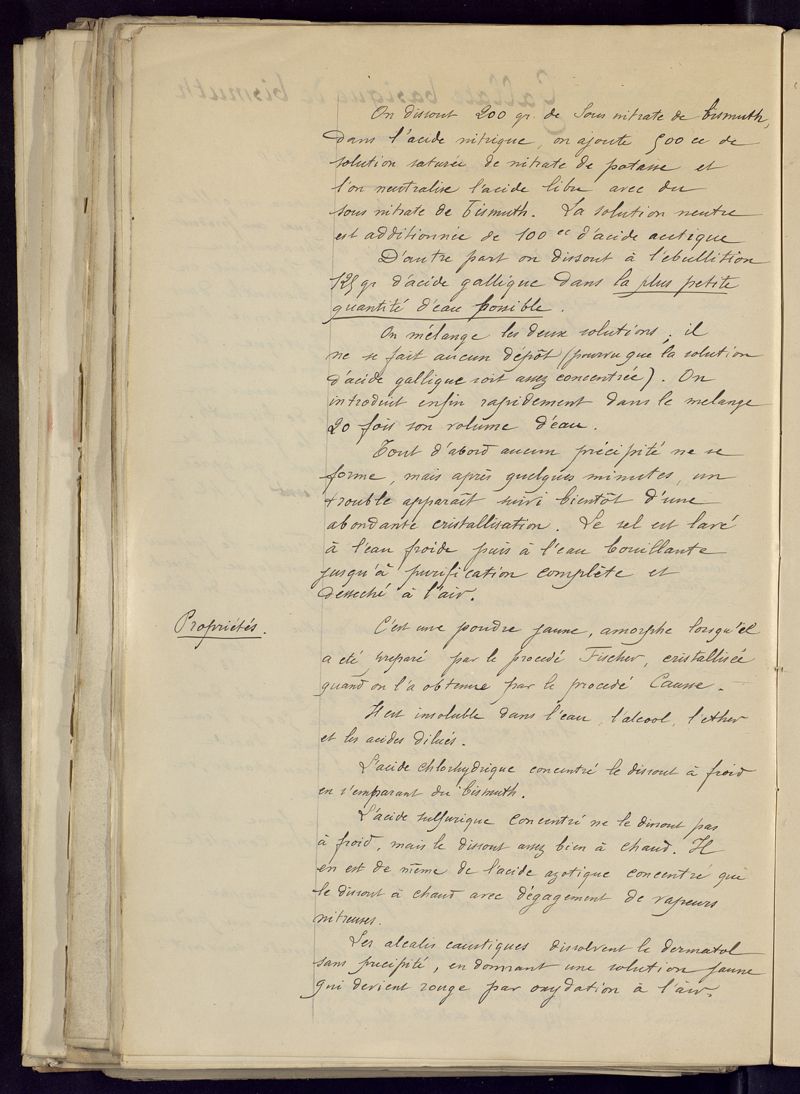 On dissout 200 gr. de sous nitrate de bismuth,
dans l'acide nitrique, on ajoute 500 cc de
solution saturée de nitrate de potasse et
l'on neutralise l'acide libre avec du
sous nitrate de bismuth. La solution neutre
est additionnée de 100 cc d'acide acétique
D'autre part on dissout à l'ébullition
125 gr d'acide gallique dans la plus petite
quantité d'eau possible.
On mélange les deux solutions; il
ne se fait aucun dépôt (pourvu que la solution
d'acide gallique soit assez concentrée). On
introduit enfin rapidement dans le mélange
20 fois son volume d'eau.
Tout d'abord aucun précipité ne se
forme, mais après quelques minutes, un
trouble apparaît suivi bientôt d'une
abondante cristallisation. Le sel est lavé
à l'eau froide puis à l'eau bouillante
jusqu'à purification complète et
desseché à l'air.
Propriétés.
C'est une poudre jaune, amorphe lorsqu'el
a été preparé par le procedé Fischer, cristallisée
quand on l'a obtenue par le procédé Causse.
Il est insoluble dans l'eau, l'alcool, l'ether
et les acides dilués.
L'acide chlorhydrique concentré le dissout à froid
en s'emparant du bismuth.
L'acide sulfurique concentré ne le dissout pas
à froid, mais le dissout assez bien à chaud. Il
en est de même de l'acide azotique concentré qui
le dissout à chaud avec dégagement de vapeurs
nitreuses.
Les alcalis caustiques dissolvent le dermatol
sans precipité, en donnant une solution jaune
qui devient rouge par oxydation à l'air.